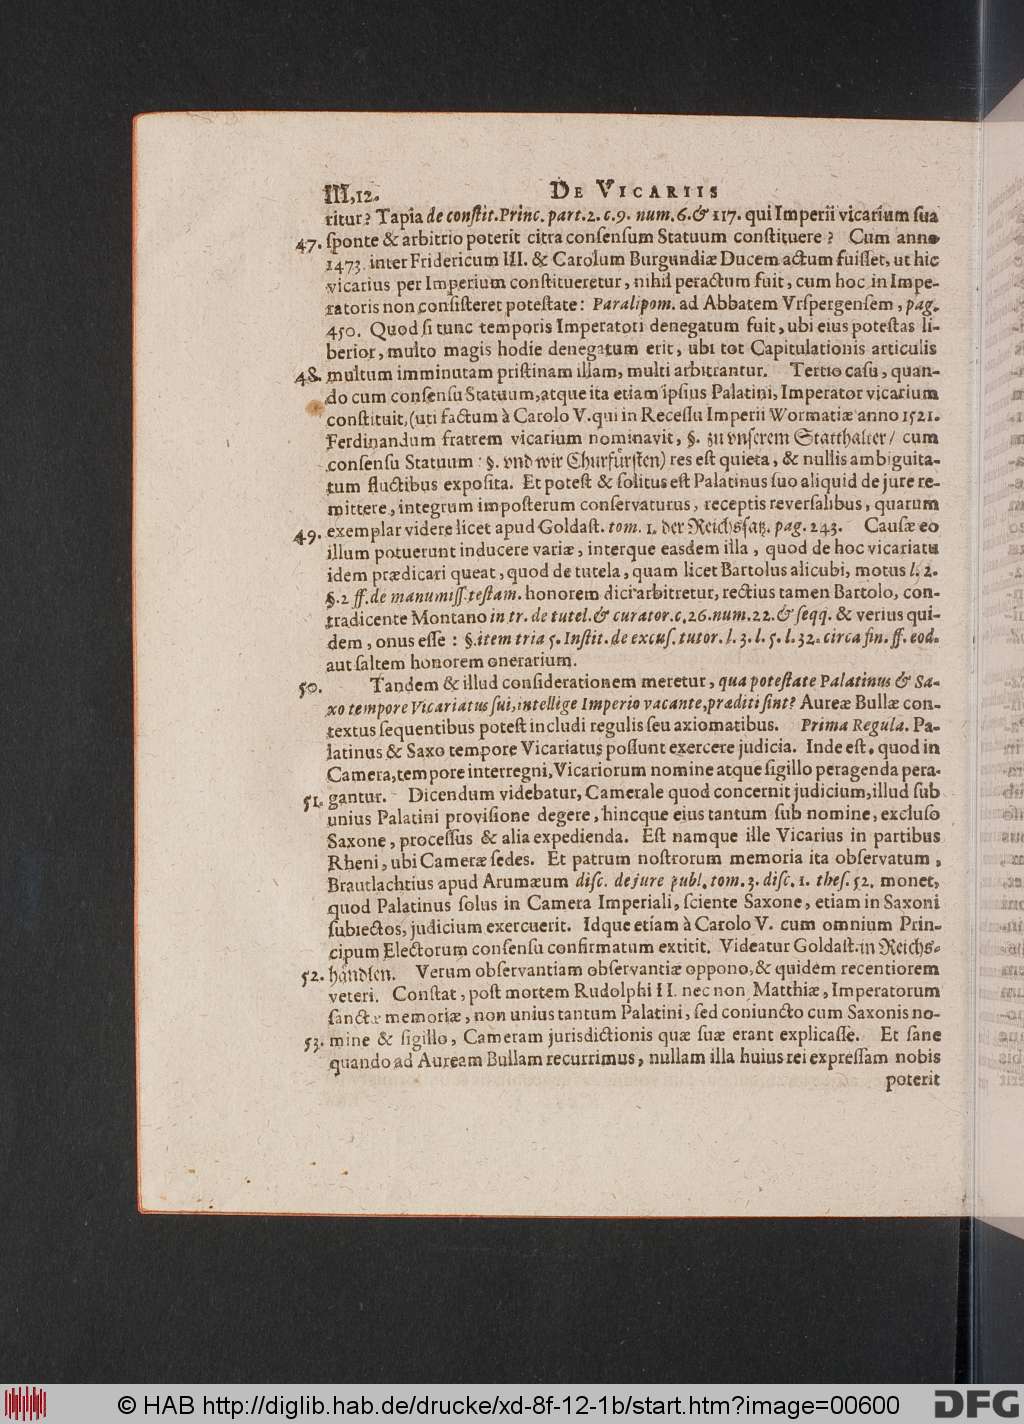 III, 12. DE VICARIIS
ritur? Tapia de constit. Princ. part. 2. c. 9. num. 6. & 117. qui Imperii vicarium sua
47. sponte & arbitrio poterit citra consensum Statuum constituere? Cum anno
1473. inter Fridericum III. & Carolum Burgundiæ Ducem actum fuisset, ut hic
vicarius per Imperium constitueretur, nihil peractum fuit, cum hoc in Impe-
ratoris non consisteret potestate: Paralipom. ad Abbatem Vrspergensem, pag.
450. Quod si tunc temporis Imperatori denegatum fuit, ubi eius potestas li-
berior, multo magis hodie denegatum erit, ubi tot Capitulationis articulis
48. multum imminutam pristinam illam, multi arbitrantur. Tertio casu, quan-
do cum consensu Statuum, atque ita etiam ipsius Palatini, Imperator vicarium
constituit, (uti factum à Carolo V. qui in Recessu Imperii Wormatiæ anno 1521.
Ferdinandum fratrem vicarium nominavit, §. zu vnserem Statthalter / cum
consensu Statuum: §. vnd wir Churfuͤrsten) res est quieta, & nullis ambiguita-
tum fluctibus exposita. Et potest & solitus est Palatinus suo aliquid de jure re-
mittere, integrum imposterum conservaturus, receptis reversalibus, quarum
49. exemplar videre licet apud Goldast. tom. 1. der Reichssatz. pag. 243. Causæ eo
illum potuerunt inducere variæ, interque easdem illa, quod de hoc vicariatu
idem prædicari queat, quod de tutela, quam licet Bartolus alicubi, motus l. 2.
§. 2 ff. de manumiss. testam. honorem dici arbitretur, rectius tamen Bartolo, con-
tradicente Montano in tr. de tutel. & curator. c. 26. num. 22. & seqq. & verius qui-
dem, onus esse: §. item tria 5. Instit. de excus. tutor. l. 3. l. 5. l. 32. circa fin. ff. eod.
aut saltem honorem onerarium.
50. Tandem & illud considerationem meretur, qua potestate Palatinus & Sa-
xo tempore Vicariatus sui, intellige Imperio vacante, præditi sint? Aureæ Bullæ con-
textus sequentibus potest includi regulis seu axiomatibus. Prima Regula. Pa-
latinus & Saxo tempore Vicariatus possunt exercere judicia. Inde est, quod in
Camera, tempore interregni, Vicariorum nomine atque sigillo peragenda pera-
51. gantur. Dicendum videbatur, Camerale quod concernit judicium, illud sub
unius Palatini provisione degere, hincque eius tantum sub nomine, excluso
Saxone, processus & alia expedienda. Est namque ille Vicarius in partibus
Rheni, ubi Cameræ sedes. Et patrum nostrorum memoria ita observatum,
Brautlachtius apud Arumæum disc. de jure publ. tom. 3. disc. 1. thes. 52. monet,
quod Palatinus solus in Camera Imperiali, sciente Saxone, etiam in Saxoni
subiectos, judicium exercuerit. Idque etiam à Carolo V. cum omnium Prin-
cipum Electorum consensu confirmatum extitit. Videatur Goldast. in Reichs-
52. händlen. Verum observantiam observantiæ oppono, & quidem recentiorem
veteri. Constat, post mortem Rudolphi II. nec non Matthiæ, Imperatorum
sanctæ memoriæ, non unius tantum Palatini, sed coniuncto cum Saxonis no-
53. mine & sigillo, Cameram jurisdictionis quæ suæ erant explicasse. Et sane
quando ad Auream Bullam recurrimus, nullam illa huius rei expressam nobis
poterit
© HAB http://diglib.hab.de/drucke/xd-8f-12-1b/start.htm?image=00600
DFG